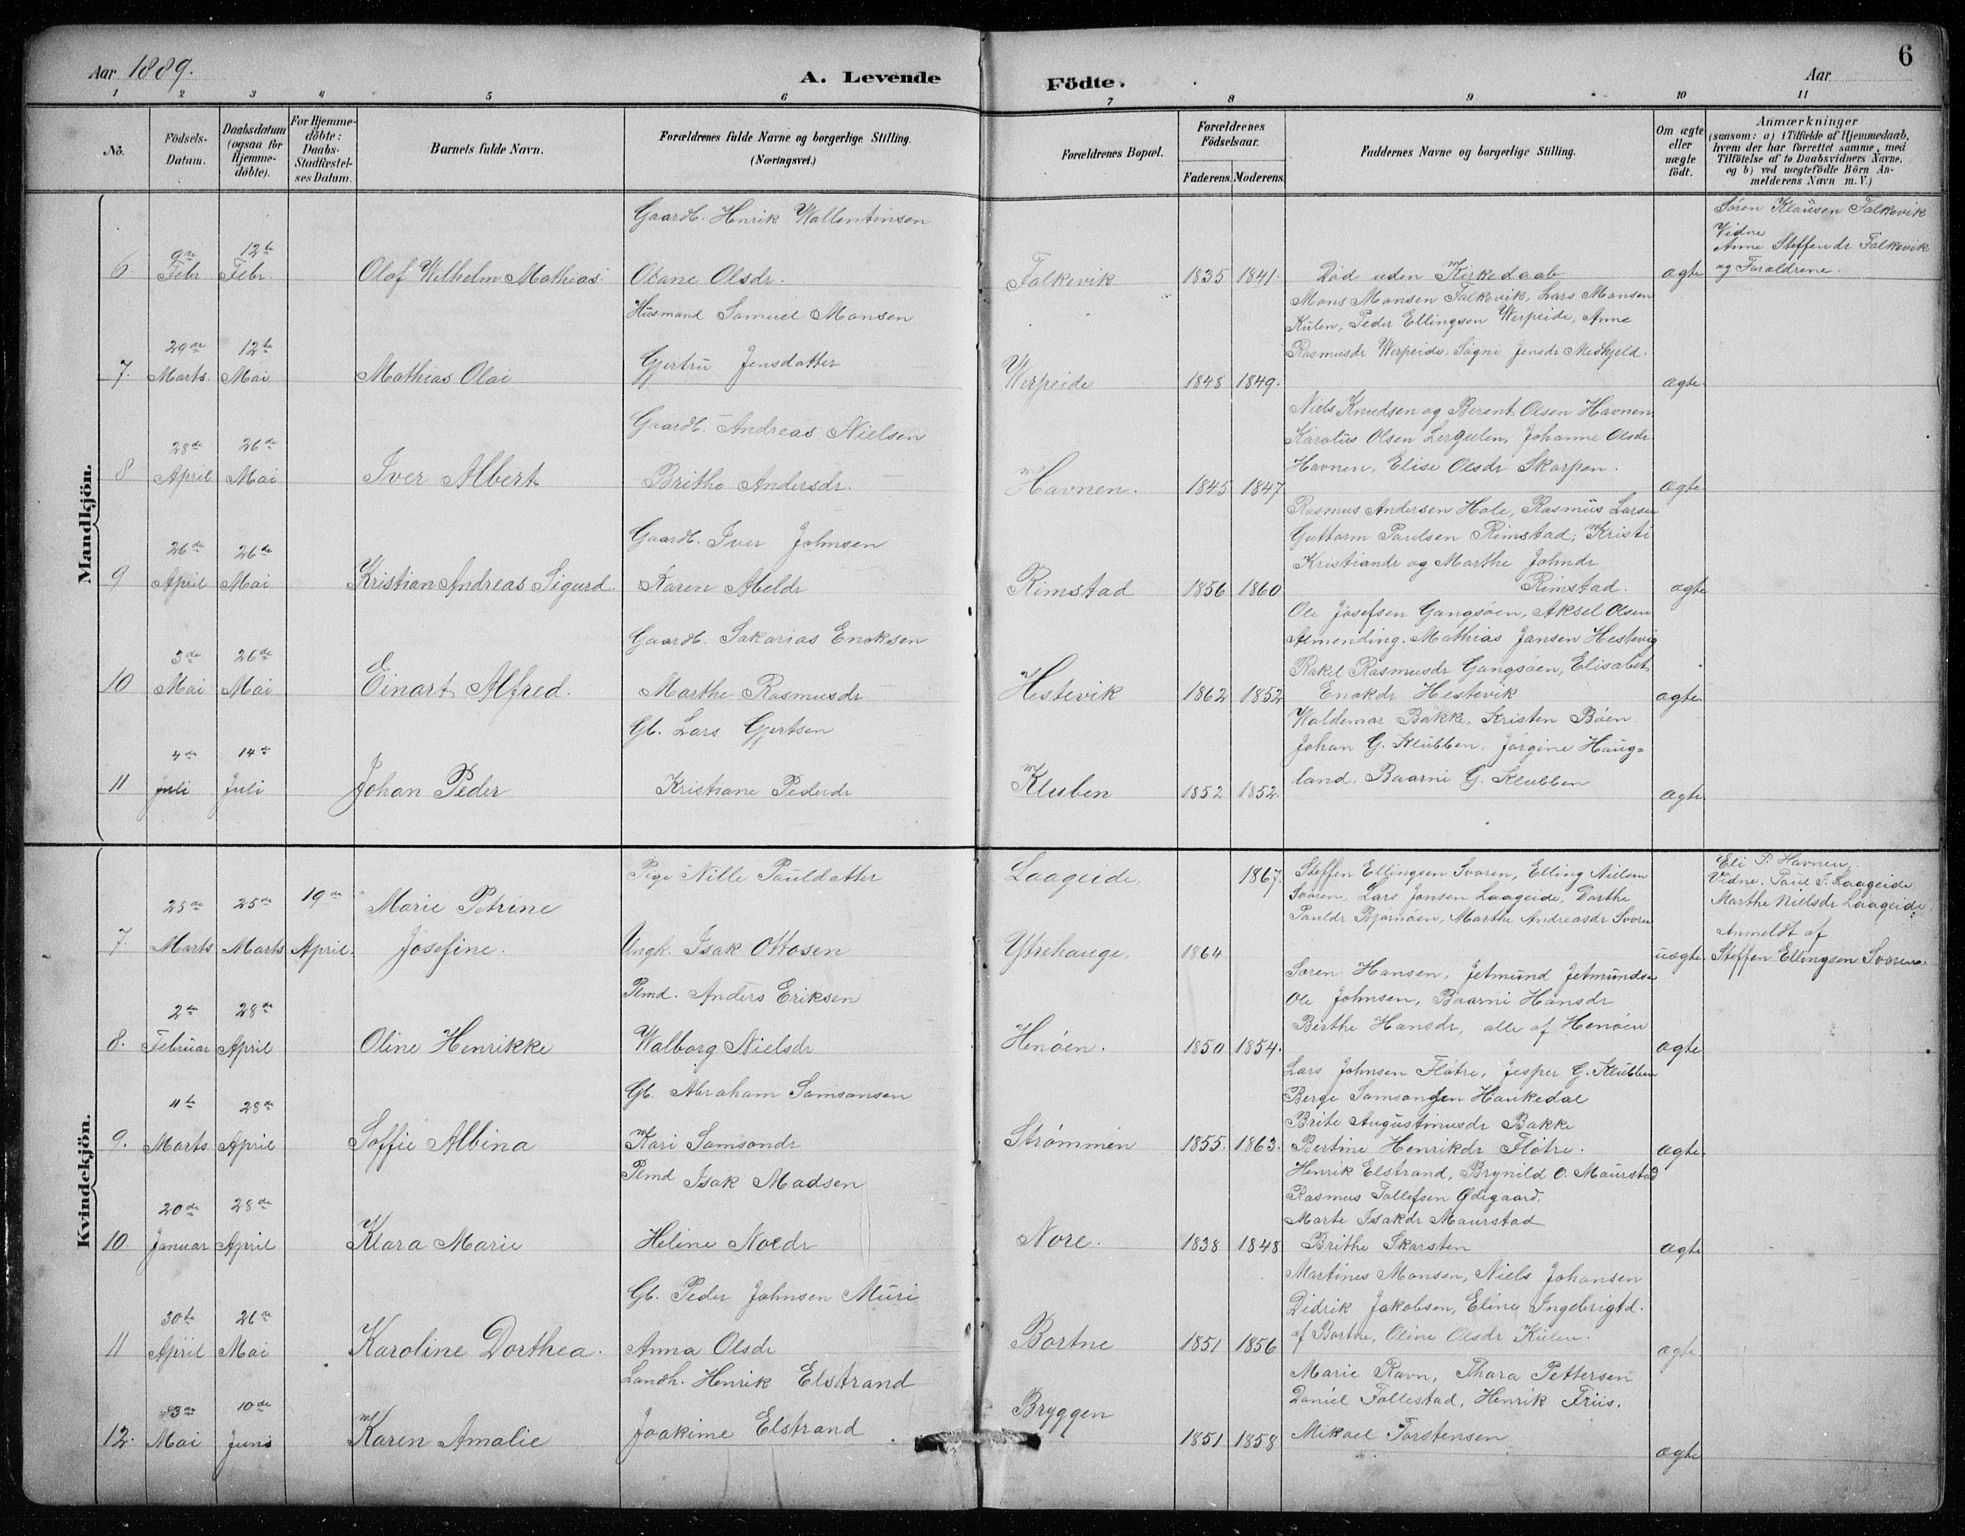 Aar 1889.
A. Levende Födte.
Aar
6
1 2 3 4 5 6 7 8 9 10 11
Nô.
Födsels-Datum.
Daabsdatum (ogsaa for Hjemmedöbte).
For Hjemmedöbte: Daabs-Stadfæstelses Datum.
Barnets fulde Navn.
Forældrenes fulde Navne og borgerlige Stilling. (Næringsvei.)
Forældrenes Bopæl.
Forældrenes Födselsaar.
Faderens. Moderens.
Faddernes Navne og borgerlige Stilling.
Om ægte eller uægte födt.
Anmærkninger (saasom: a) i Tilfælde af Hjemmedaab, hvem der har forrettet samme, med Tilföielse af to Daabsvidners Navne, og b) ved uægtefödte Börn Anmelderens Navn m. V.)
Mandkjön.
Gaardb. Henrik Wallentinsen
Søren Klausen Falkevik
Vidne
Anne Steffensdr Falkevik
og Forældrene.
6 9de Febr 12te Febr. Olaf Wilhelm Mathias Oline Olsdr. Falkevik 1835 1841. Død uden Kirkedaab ægte
Husmand Samuel Monsen
Mons Monsen Falkevik, Lars Monsen
Kulen, Peder Ellingsen Werpeide, Anne
Rasmusdr Werpeide, Sogni Jensdr Medkjeld.
7. 29de Marts. 12te Mai Mathias Olai Gjertru Jensdatter Werpeide 1848 1849. ægte
Gaardb. Andreas Nielsen
Niels Knudsen og Berent Olsen Havnen
Karolus Olsen Lergulen, Johanne Olsdr
Havnen, Elise Olsdr Skarpen.
8 28de April 26de Mai Iver Albert Brithe Andersdr. Havnen. 1845 1847 ægte
Gaardb. Iver Johnsen
Rasmus Andersen Hole, Rasmus Larsen
Guttorm Paulsen Rimstad, Kristi
Kristiandr og Marthe Johndr
Rimstad.
9 26de April 26de Mai Kristian Andreas Sigurd. Karen Abeldr Rimstad 1856 1860 ægte
Gaardb. Sakarias Enoksen
Ole Josefsen Gangsøen, Aksel Olsen
Almending. Mathias Jansen Hestevig
Rakel Rasmusdr Gangsøen, Elisabet
Enokdr Hestevik
10 3de Mai 26de Mai Einart Alfred. Marthe Rasmusdr Hstevik 1862 1852 ægte
Gb. Lars Gjertsen
Waldemar Bakke, Kristen Bøen
Johan G. Klubben, Jørgine Haug-
land, Baarni G. Klubben
11 4de Juli 14de Juli Johan Peder Kristiane Pederdr Kluben 1852 1852. ægte
Kvindekjön.
Pige Nille Pauldatter Laageide 1867.
Steffen Ellingsen Svoren, Elling Nielsen
Svoren, Lars Jonsen Laageide, Dorthe
Pauldr Bjørnøen, Marthe Andreasdr Svoren
Eli P. Havnen.
Vidne. Paul J. Laageide
Marthe Nielsdr Laageide,
Anmeldt af
Steffen Ellingsen Svoren.
7. 25de Marts 25de Marts 19de April. Marie Petrine Josefine. Ungk. Isak Ottosen Ytrehauge. 1864 uægte
Plmd. Anders Eriksen
Søren Hansen, Jetmund Jetmundsen
Ole Johnsen, Baarni Hansdr
Berthe Hansdr, alle af Henøen
8. 2de Februar 28de April Oline Henrikke Walborg Nielsdr Henøen. 1850 1854. ægte
Gb. Abraham Samsonsen
Lars Johnsen Fløtre, Jesper G. Klubben
Berge Samsonsen Haukedal
Brite Augustinusdr Bakke
Bertine Henrikdr Fløtre.
9. 4te Marts 28de April Soffie Albina Kari Samsondr Strømmen 1855. 1863. ægte
Plmd Isak Madsen
Henrik Elstrand, Brynild O. Maurstad
Rasmus Tollefsen Ødegaard.
Marte Isakdr Maurstad
Brithe Skarsten
10. 20de Januar 28de April Klara Marie Heline Noedr Nore. 1838 1848 ægte
Gb. Peder Johnsen Muri
Martines Monsen, Niels Johansen
Didrik Jakobsen, Eline Ingebrigtd.
af Bortne, Oline Olsdr Kulen.
11 30te April 26de Mai Karoline Dorthea. Anna Olsdr Bortne 1851 1856 ægte
Landh. Henrik Elstrand
Marie Ravn, Thora Pettersen
Daniel Follestad, Henrik Friis.
Mikael Torstensen
12. 3de Mai 10de Juni Karen Amalie Joakime Elstrand Bryggen 1851 1858 ægte